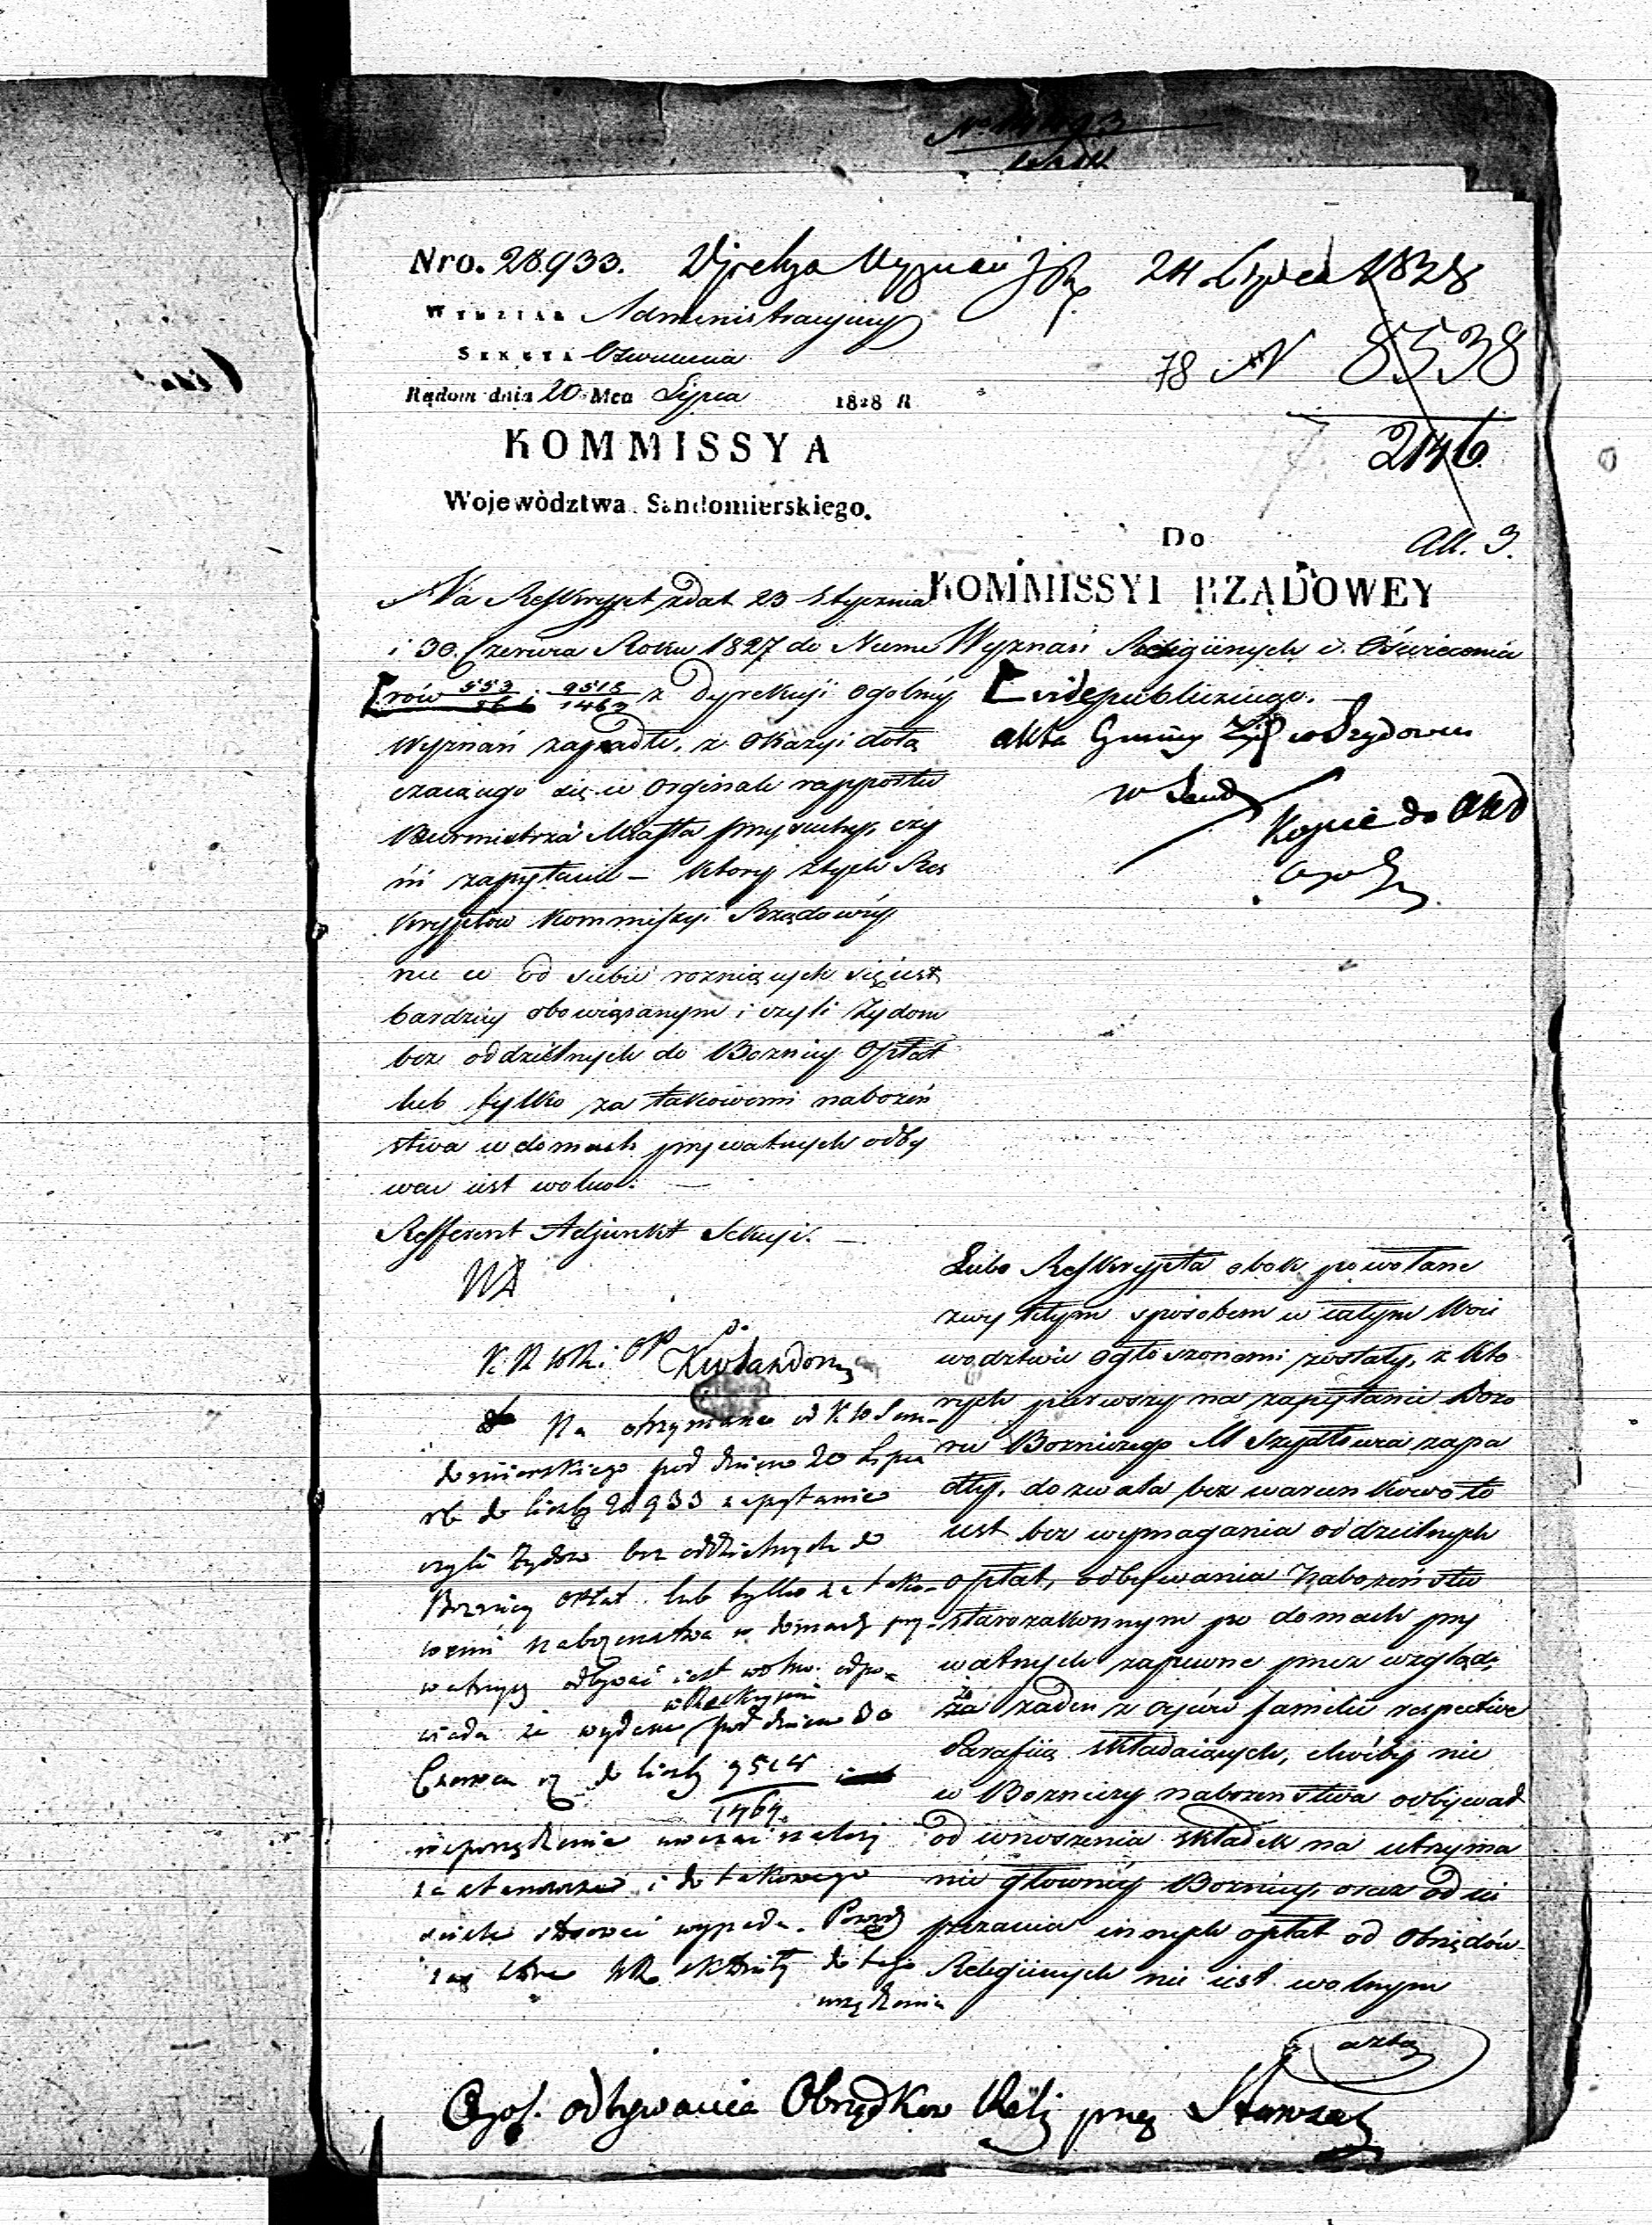 Nro. 28933. Dyrekcya Wyznań 24 Lipca 1828
Wydział Administracyjny
Sekcya Oświecenia
78 N 8538
Radom dnia 20 Mca Lipca 1828 R
2146
KOMMISSYA
Województwa Sandomierskiego.
Do
All. 3.
KOMMISSYI RZĄDOWEY
Wyznań Religiinych i Oświecenia
publicznego.
vide
akta Gminy Żyd w Szydłowcu
w Sand
Kopie do Akt
Na Reskrypt zdat 23 Stycznia
i 30. Czerwca Roku 1827 do Nume
rów 553 i 9518/1463 z Dyrekcyi ogolnéy
Wyznań zapadłe, z okazyi dołą
czaiącego się w orginale rapportu
Burmistrza Miasta Przysuchy, czy
ni zapytanie – który ztych Res
kryptow Kommissyi Rządowéy
nieco od siebie rozniących się iest
bardziey obowiązanym i czyli Żydom
bez oddzielnych do Bożnicy Opłat
lub tylko za takowemi nabożeń
stwa w domach prywatnych odby
wać iest wolno. —
Refferent Adjunkt Sekcyi. —
Na otrzymane od K W San-
domierskiego pod dniem 20 Lipca
rb do liczby 28933 zapytanie
czyli Żydom bez oddzielnych do
Bożnicy Opłat lub tylko za tako-
wemi nabożenstwa w domach pry-
watnych odbywać iest wolno. odpo-
wiada że wydane w Reskrypcie pod dniem 30
Czerwca rz do liczby 9518/1464
rozporządzenie uważać należy
za stanowcze i do takowego
ściśle stosować wypada.
do tego
urządzenia
Lubo Reskrypta obok powołane
zwykłym sposobem w całym Woie
wodztwie ogłoszonemi zostały, z któ
rych pierwszy na zapytanie Dozo
ru Bożniczego M Szydłowca zapa
dły, dozwala bez warunkowo to
iest bez wymagania oddzielnych
opłat, odbywania Nabożeństw
starozakonnym po domach pry
watnych zapewne przez wzgląd,
że żaden z oyców familii respective
Parafią składaiących, chociby nie
w Bożnicy nabożenstwa odbywał
od wnoszenia składek na utrzyma
nie głownéy Bożnicy, oraz od ui
szczania innych opłat od Obrzędów
Religiinych nie iest wolnym
odbywania Obrzędkow Reli przez Starozak